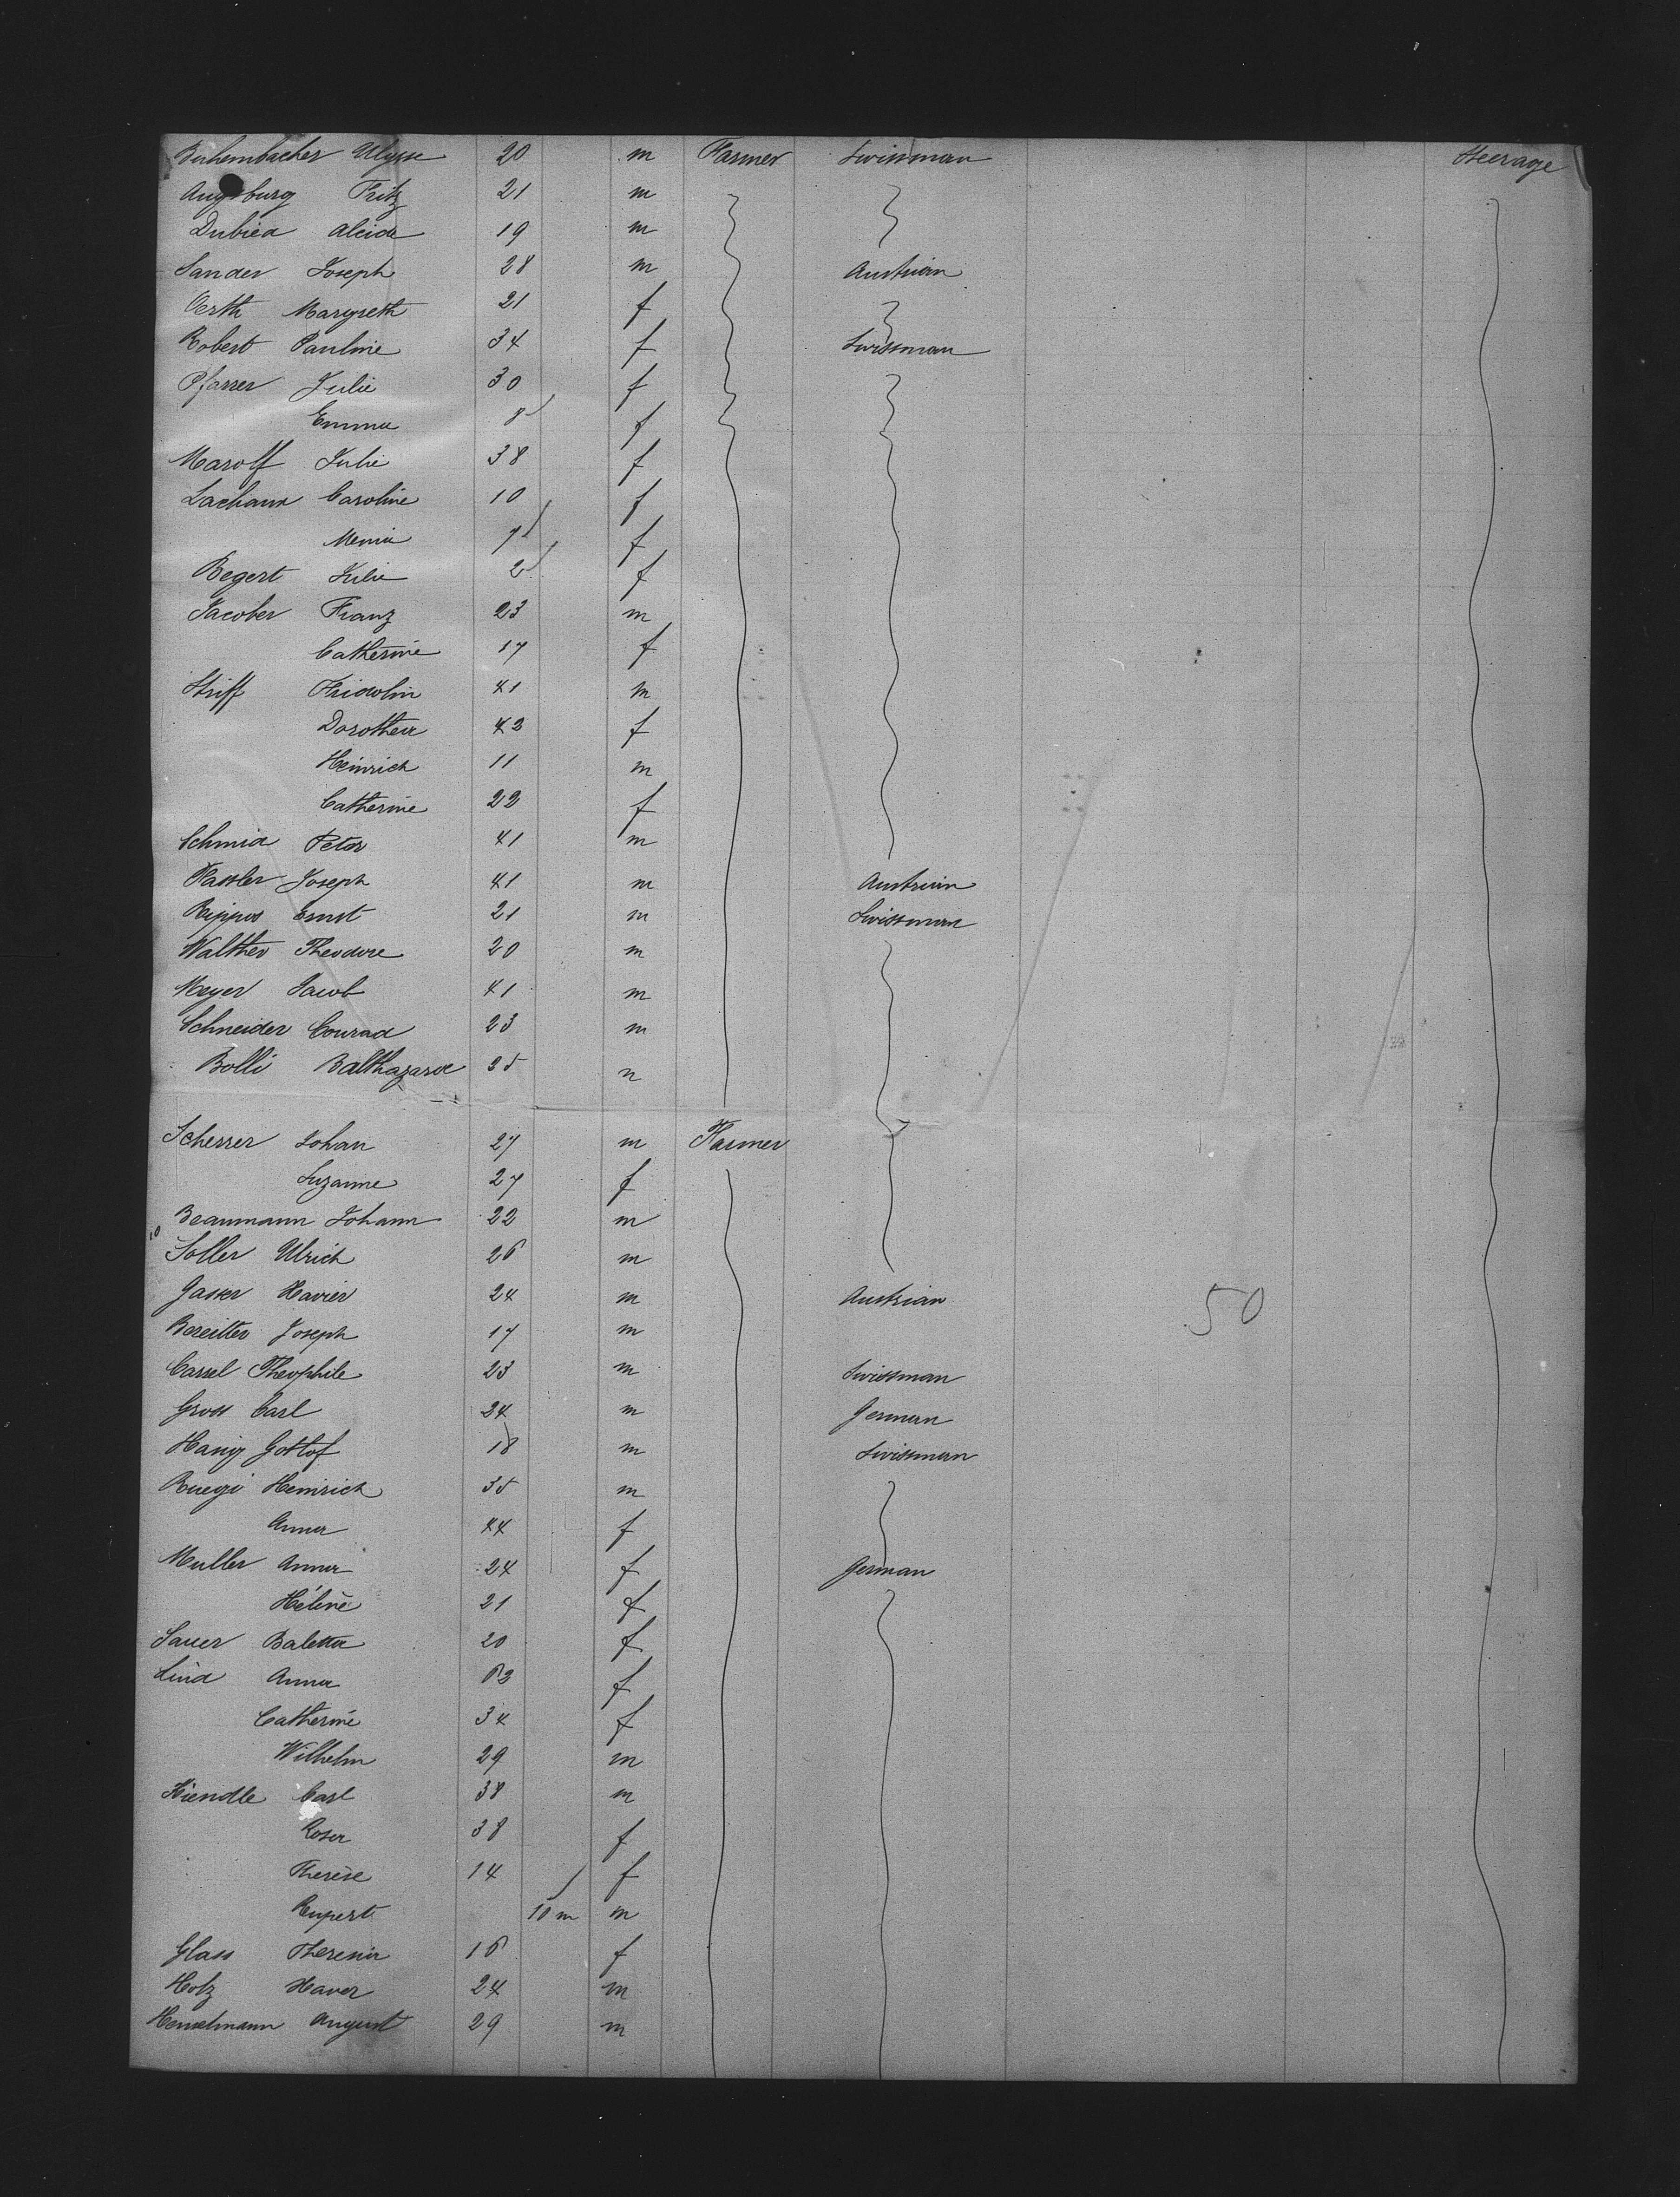 Buhembacher Ulysse 20 m Farmer Swissman Steerage
Augsburg Fritz 21 m
Dubied Alcide 19 m
Sander Joseph 28 m Austrian
Oerth Margreth 21 f
Robert Pauline 34 f Swissman
Pfarrer Julie 30 f
Emma 8 f
Marolf Julie 38 f
Lachaux Caroline 10 f
7 f
Begert Julie 2 f
Jacober Franz 23 m
Catherine 17 f
Striff Fridolin 41 m
Dorothea 42 f
Heinrich 11 m
Catherine 22 f
Schmid Peter 41 m
Fassler Joseph 41 m Austrian
Rippos Ernst 21 m Swissman
Walther Theodore 20 m
Meyer Jacob 41 m
Schneider Conrad 23 m
Bolli Balthazard 35 m
Scherrer Johan 27 m Farmer
Suzanne 27 f
Beaumann Johann 22 m
10
Soller Ulrich 26 m
Gasser Xavier 24 m Austrian 50
Bereitter Joseph 17 m
Carrel Theophile 23 m Swissman
Gross Carl 24 m German
Hanig Gottlof 18 m Swissman
Ruegi Heinrich 35 m
Anna 44 f
Muller Anna 24 f German
Hélène 21 f
Sauer Baletta 20 f
Lind Anna 62 f
Catherine 34 f
Wilhelm 29 m
Kiendle Carl 38 m
Rosa 38 f
Therèse 14 f
Rupert 10 m m
Glass Theresia 16 f
Holz Xaver 24 m
Henselmann August 29 m